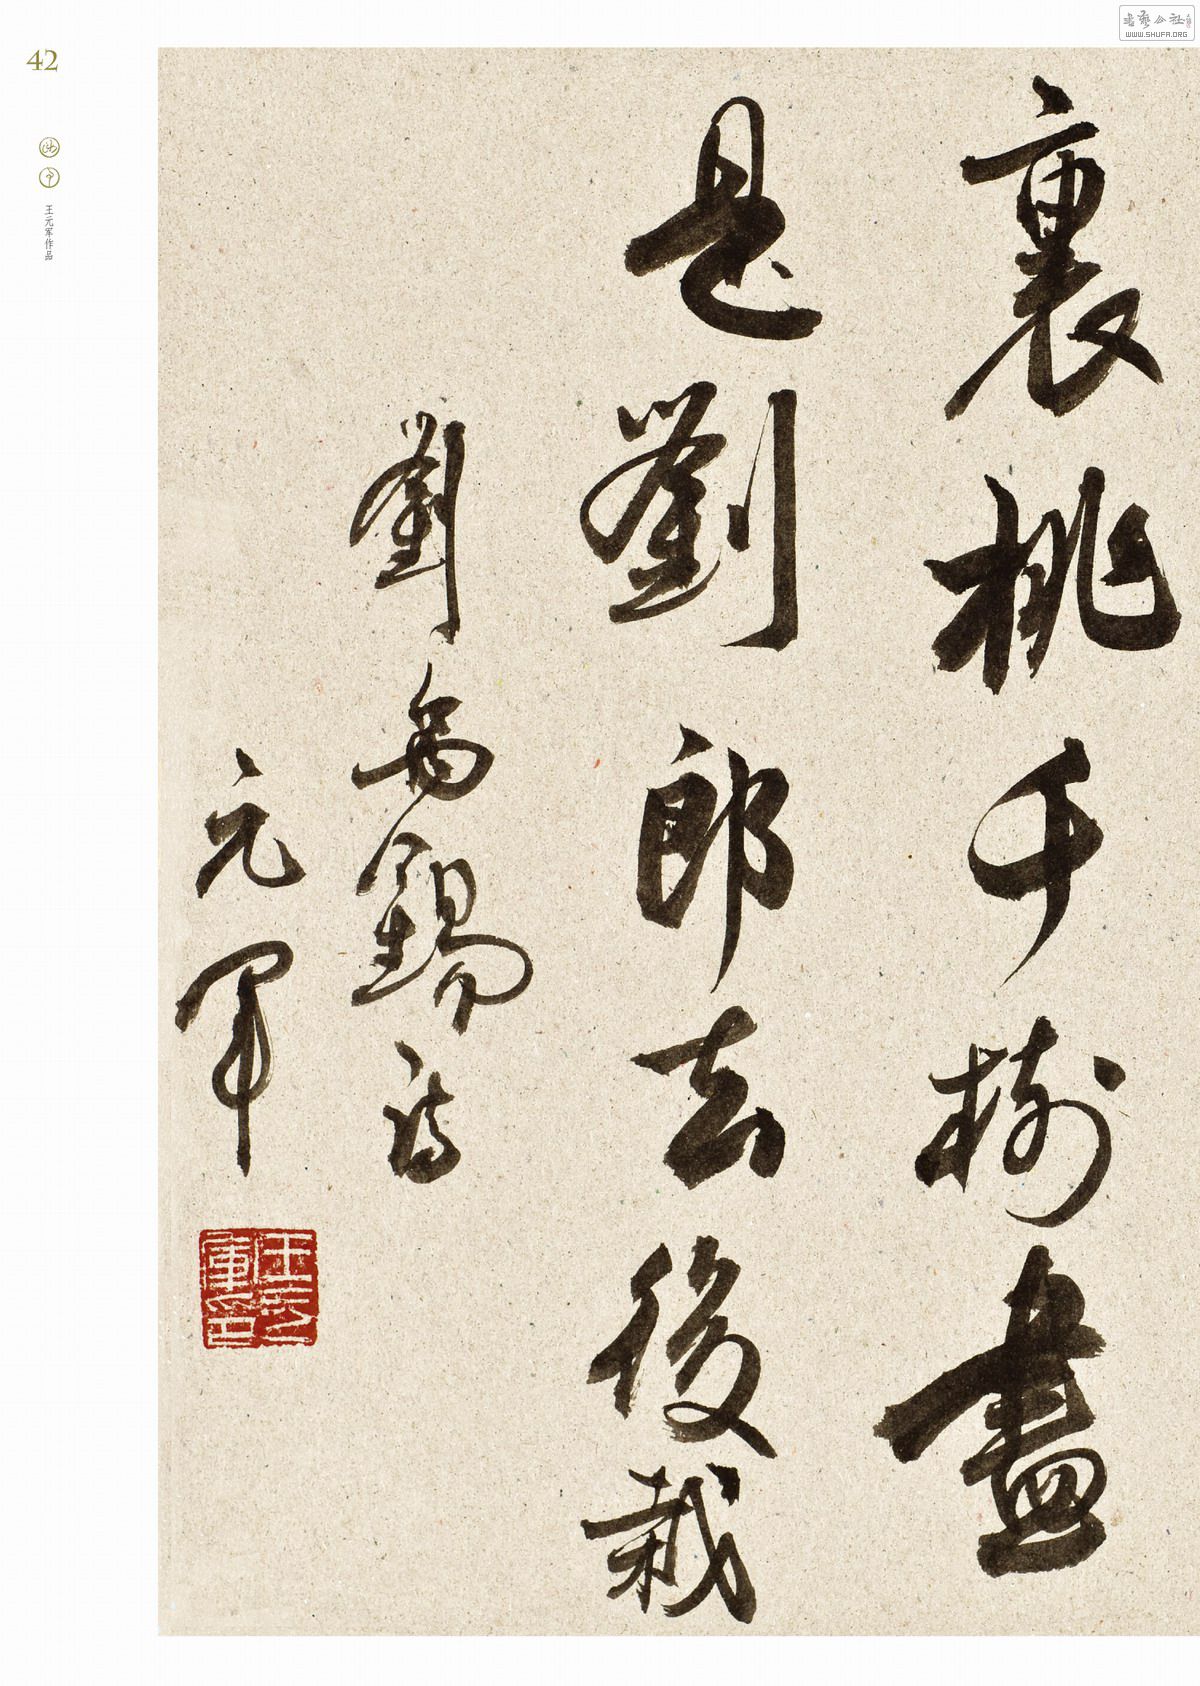 42
王元军作品
書藝公社
WWW.SHUFA.ORG
裏桃千樹盡
是劉郎去後栽
劉禹錫詩
元軍
王元
軍印